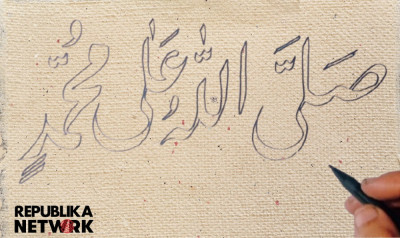 صَلَّى اللّٰهُ عَلَى مُحَمَّدٍ
REPUBLIKA
NETWORK